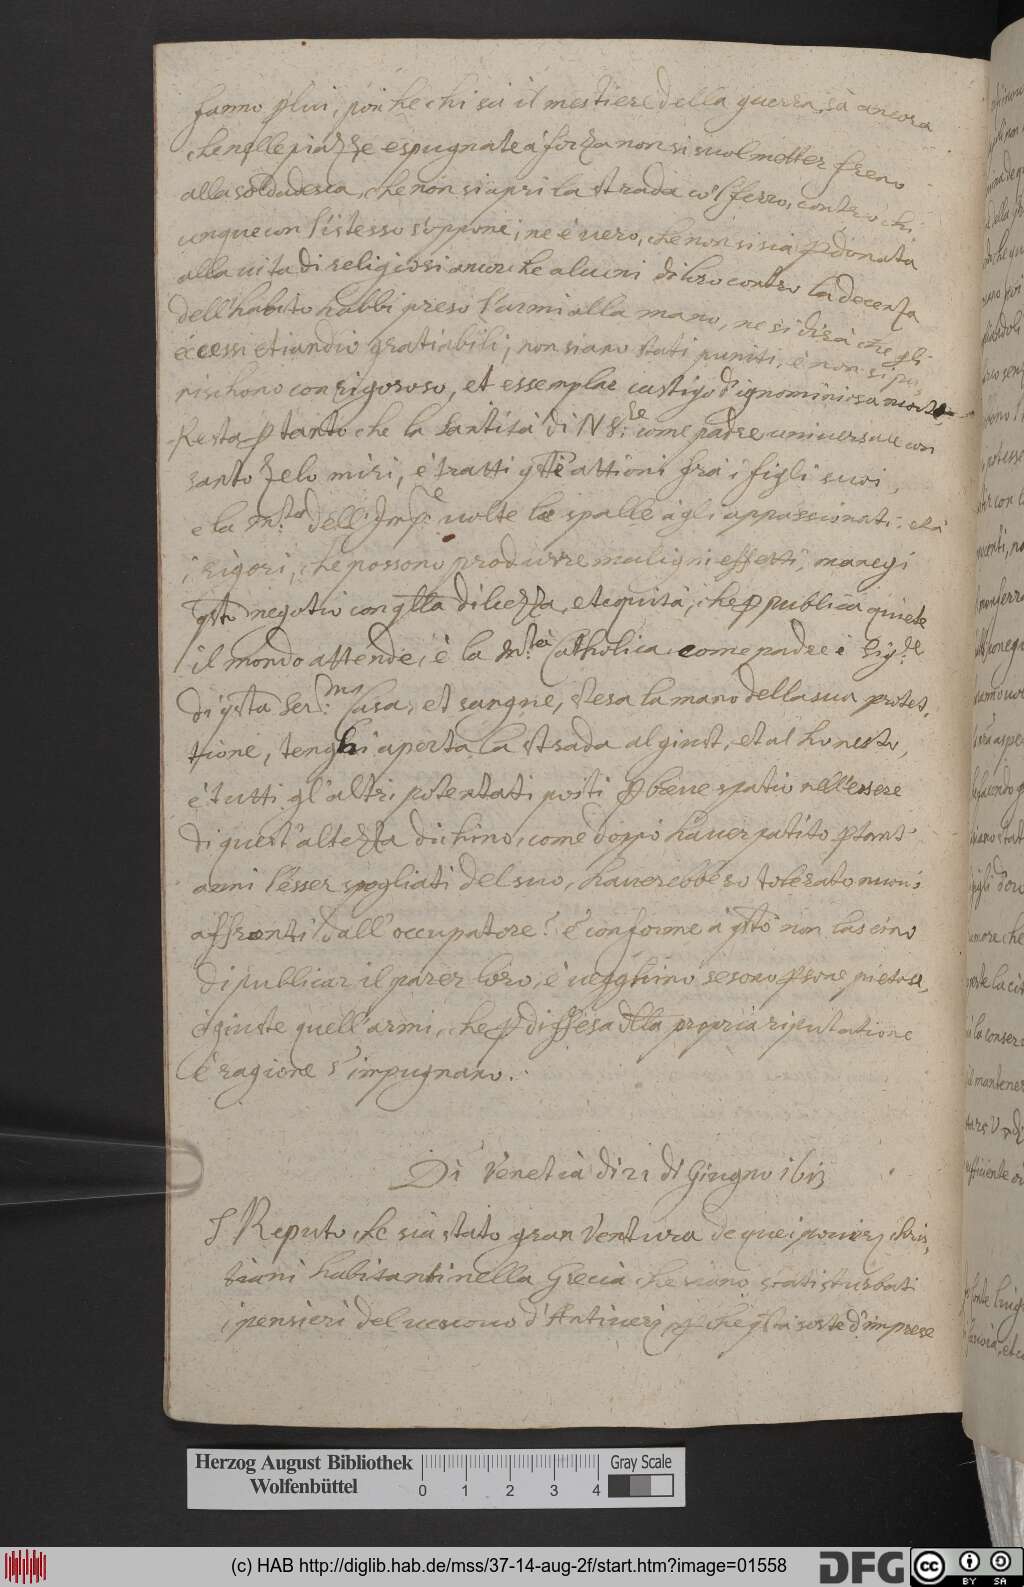 fanno p lui, poiche chi sà il mestiere della guerra, sà ancora
che nelle piazze espugnate à forza non si suol metter freno
alla soldadesca, che non si apri la strada co'l ferro, contro chi
unque con l'istesso s'oppone, ne è vero, che non si sia pdonata
alla vita di religiosi ancorche alcuni di loro contro la decenza
dell'habito habbi preso l'armi alla mano, ne si dirà che gli
eccessi etiandio gratiabili, non siano stati puniti, è non si pu
nischono con rigoroso, et essemplar castigo d'ignominiosa morte,
Resta p tanto che la santità di N S:re come padre universale con
santo zelo miri, è tratti qste attioni frà i figli suoi,
e la M:tà dell'Imp:re volte le spalle agli appassionati, età
i rigori, che possono produrre maligni effetti, manegi
qsto negotio con qlla dolcezza, et equità, che p publica quiete
il mondo attende, è la M:tà Catholica, come padre è Sig:re
di qsta Ser:ma Casa, et sangue, stesa la mano della sua protet,
tione, tenghi aperta la strada al giusto, et al honesto,
è tutti gl'altri potentati posti p breve spatio nell'essere
di quest'altezza dichino, come doppò haver patito p tant'
anni l'esser spogliati del suo, haverebbero tolerato nuovi
affronti dall'occupatore? è conforme à qsto non lascino
di publicar il parer loro, è vegghino se sono psone pietose,
è giuste quell'armi, che p diffesa della propria riputatione
è ragione s'impugnano.
Di Venetia di 21 di Giugno 1613
Reputo che sia stato gran ventura de quei poveri chris,
tiani habitanti nella Grecia che siano stati sturbati
i pensieri del vescovo d'Antiveri p che qlla sorte d'imprese
Herzog August Bibliothek
Wolfenbüttel
0 1 2 3 4
Gray Scale
(c) HAB http://diglib.hab.de/mss/37-14-aug-2f/start.htm?image=01558
DFG
cc BY SA